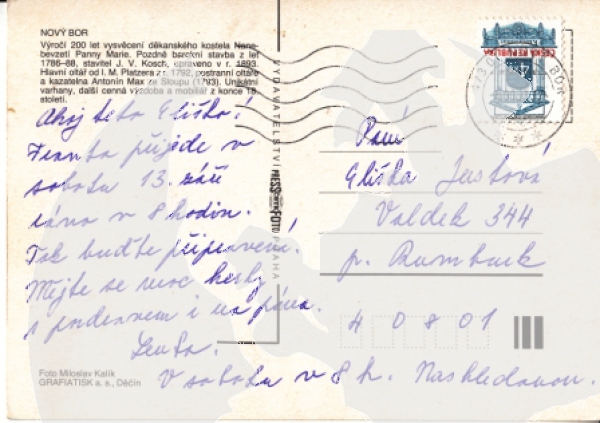 NOVÝ BOR
Výročí 200 let vysvěcení děkanského kostela Nane-
bevzetí Panny Marie. Pozdně barokní stavba z let
1786–88, stavitel J. V. Kosch, upraveno v r. 1893.
Hlavní oltář od I. M. Platzera z r. 1792, postranní oltáře
a kazatelna Antonín Max ze Sloupu (1793). Unikátní
varhany, další cenná výzdoba a mobiliář z konce 18
století.
Ahoj teto Eliško!
Franta přijede v
sobotu 13. září
ráno v 8 hodin.
Tak buďte připraveni.
Mějte se moc hezky
s pozdravem i na pána.
Lenka.
V sobotu v 8 h. Nashledanou.
Foto Miloslav Kalík
GRAFIATISK a. s., Děčín
VYDAVATELSTVÍ PRESSFOTO PRAHA
ČESKÁ REPUBLIKA
BOR
Paní
Eliška Justová
Valdek 344
p. Rumburk
40801